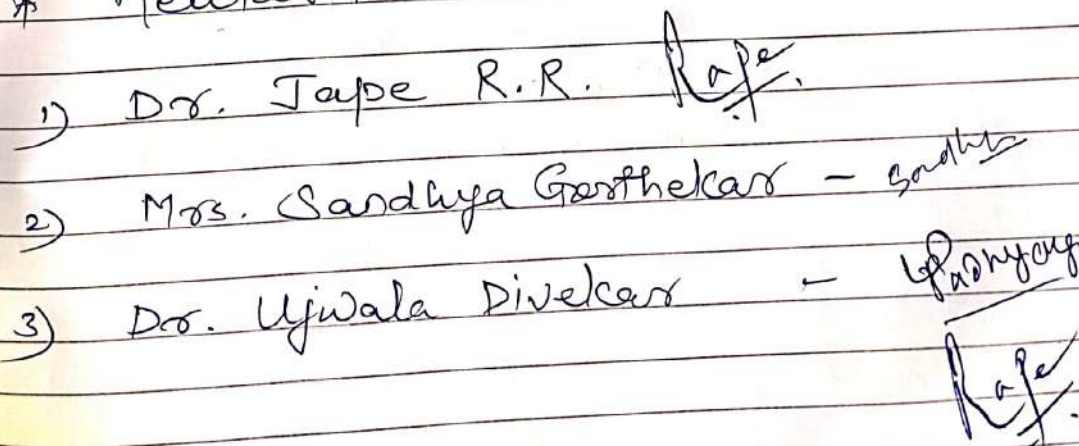 *
1) Dr. Tape R.R. Rape
2) Mrs. Sandhya Gorthekar - Sandhya
3) Dr. Ujwala Divekar -
Rape